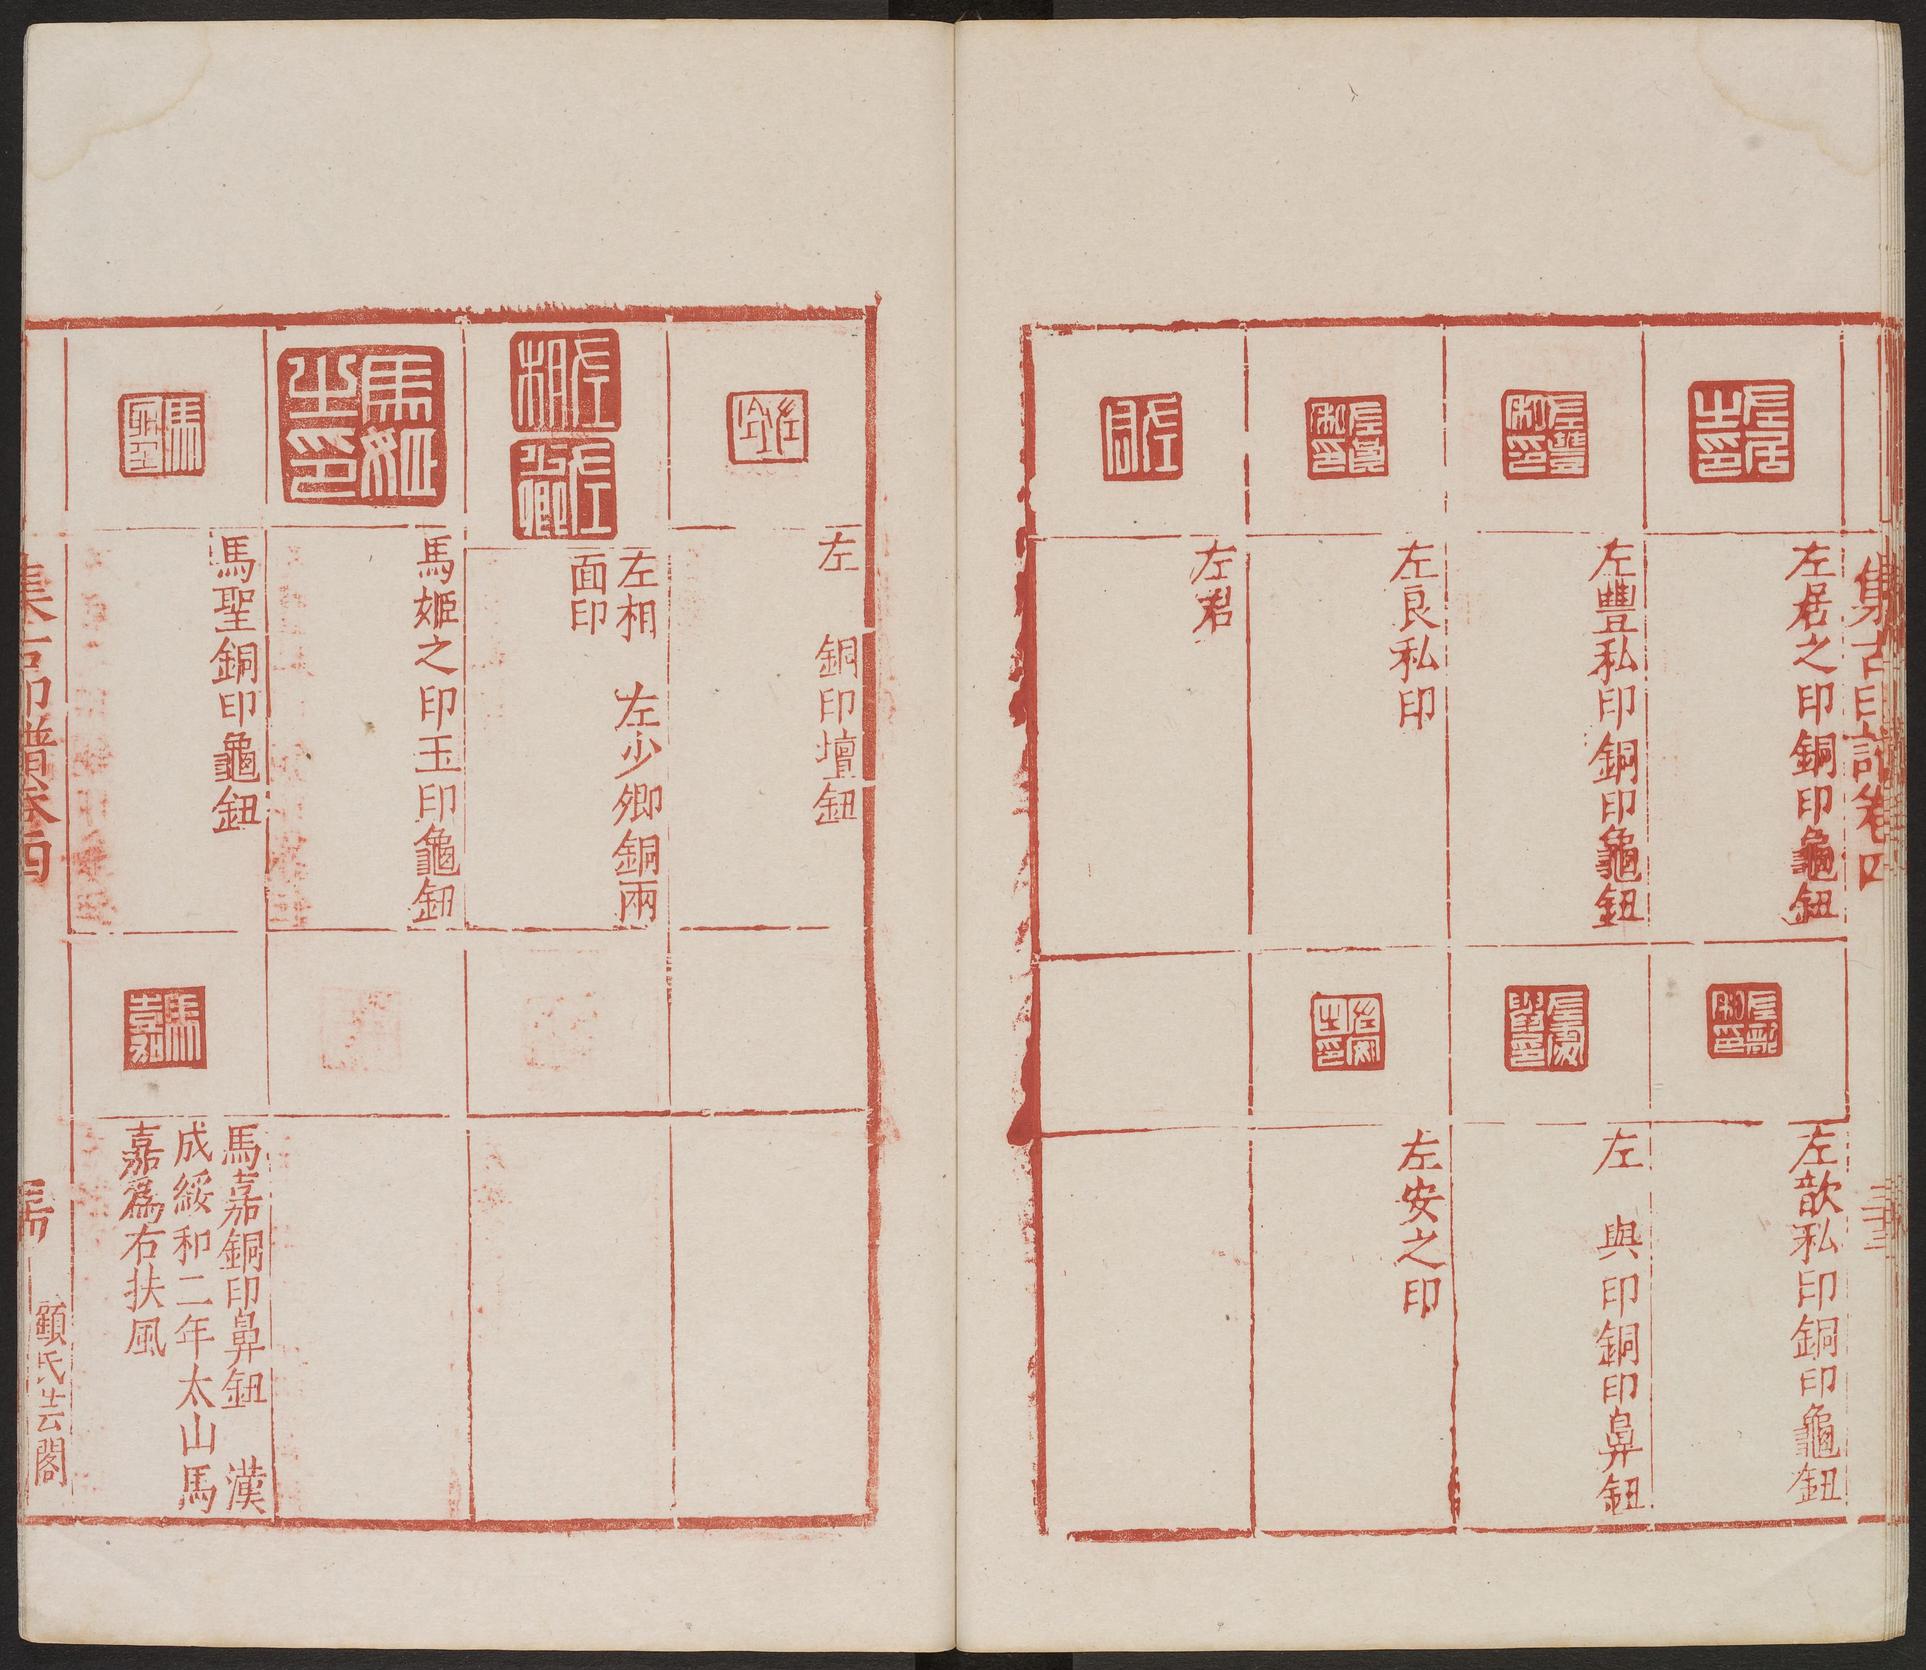 集古印譜卷四
左居之印銅印龜鈕
左豐私印銅印龜鈕
左良私印
左君
左歆私印銅印龜鈕
左　與印銅印鼻鈕
左安之印
左　銅印壇鈕
左相　左少卿銅兩
面印
馬姬之印玉印龜鈕
馬聖銅印龜鈕
馬嘉銅印鼻鈕　漢
成綏和二年太山馬
嘉爲右扶風
集古印譜卷四
顧氏芸閣